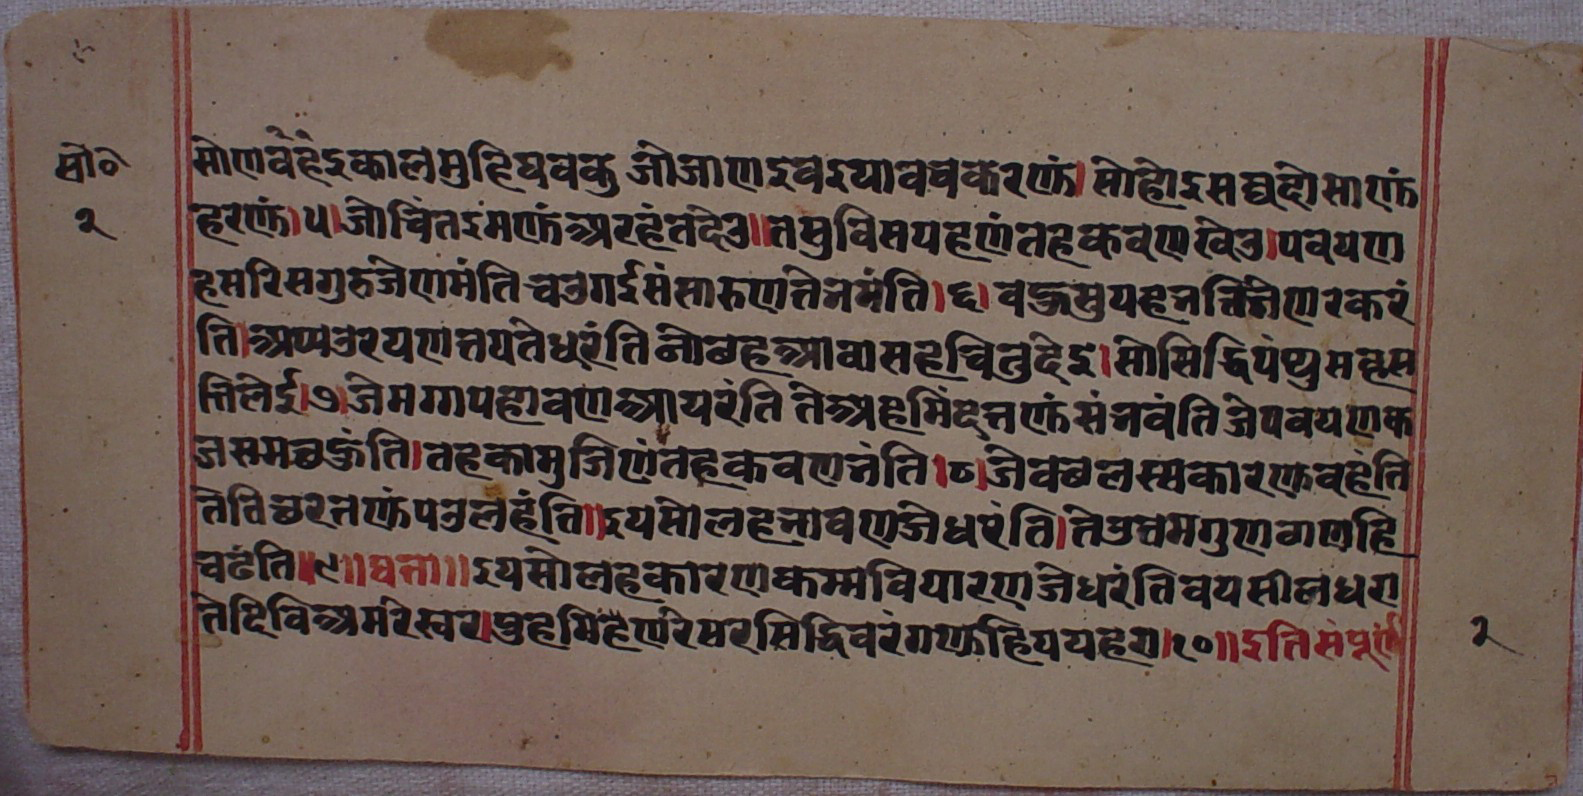 सो०
२
सोणवहइकालमुहिपवकु जोजाणइवइयावचकरणं। सोहोइसव्वदोसाणं
हरणं।५।जोचिंतइमणंअरहंतदेउ॥तसुविसयहणंतहकवणखेउ।पवयण
हसरिसगुरुजेणमंति चउगईसंसारुणतेभमंति।६।वज्जसुयहभत्तिजेणरकरं
ति।अप्पउरयणत्तयतेधरंति जोबहआवासहचितुदेइ।सोसिद्धिपंथुसहस
त्तिलेई।७।जेमग्गपहावणआयरंति तेअहमिंदत्तणंसंभवंति जेपवयणक
ज्जसमच्छंति।तहकम्मुजिणंतहकवणभंति।८।जेवच्छलस्सकारणवहंति
तेतिच्छरत्तणंपउलहंति॥इयसोलहभावणजेधरंति।तेउत्तमगुणगणहि
चढंति॥९॥घत्ता॥इयसोलहकारणकम्मवियारणजेधरंतिवयसीलधरा
तेदिविअमरेस्वर।पुहमिंहणरेसरसिद्धिवरंगणहियहरा।१०॥इतिसंपूर्णं
२